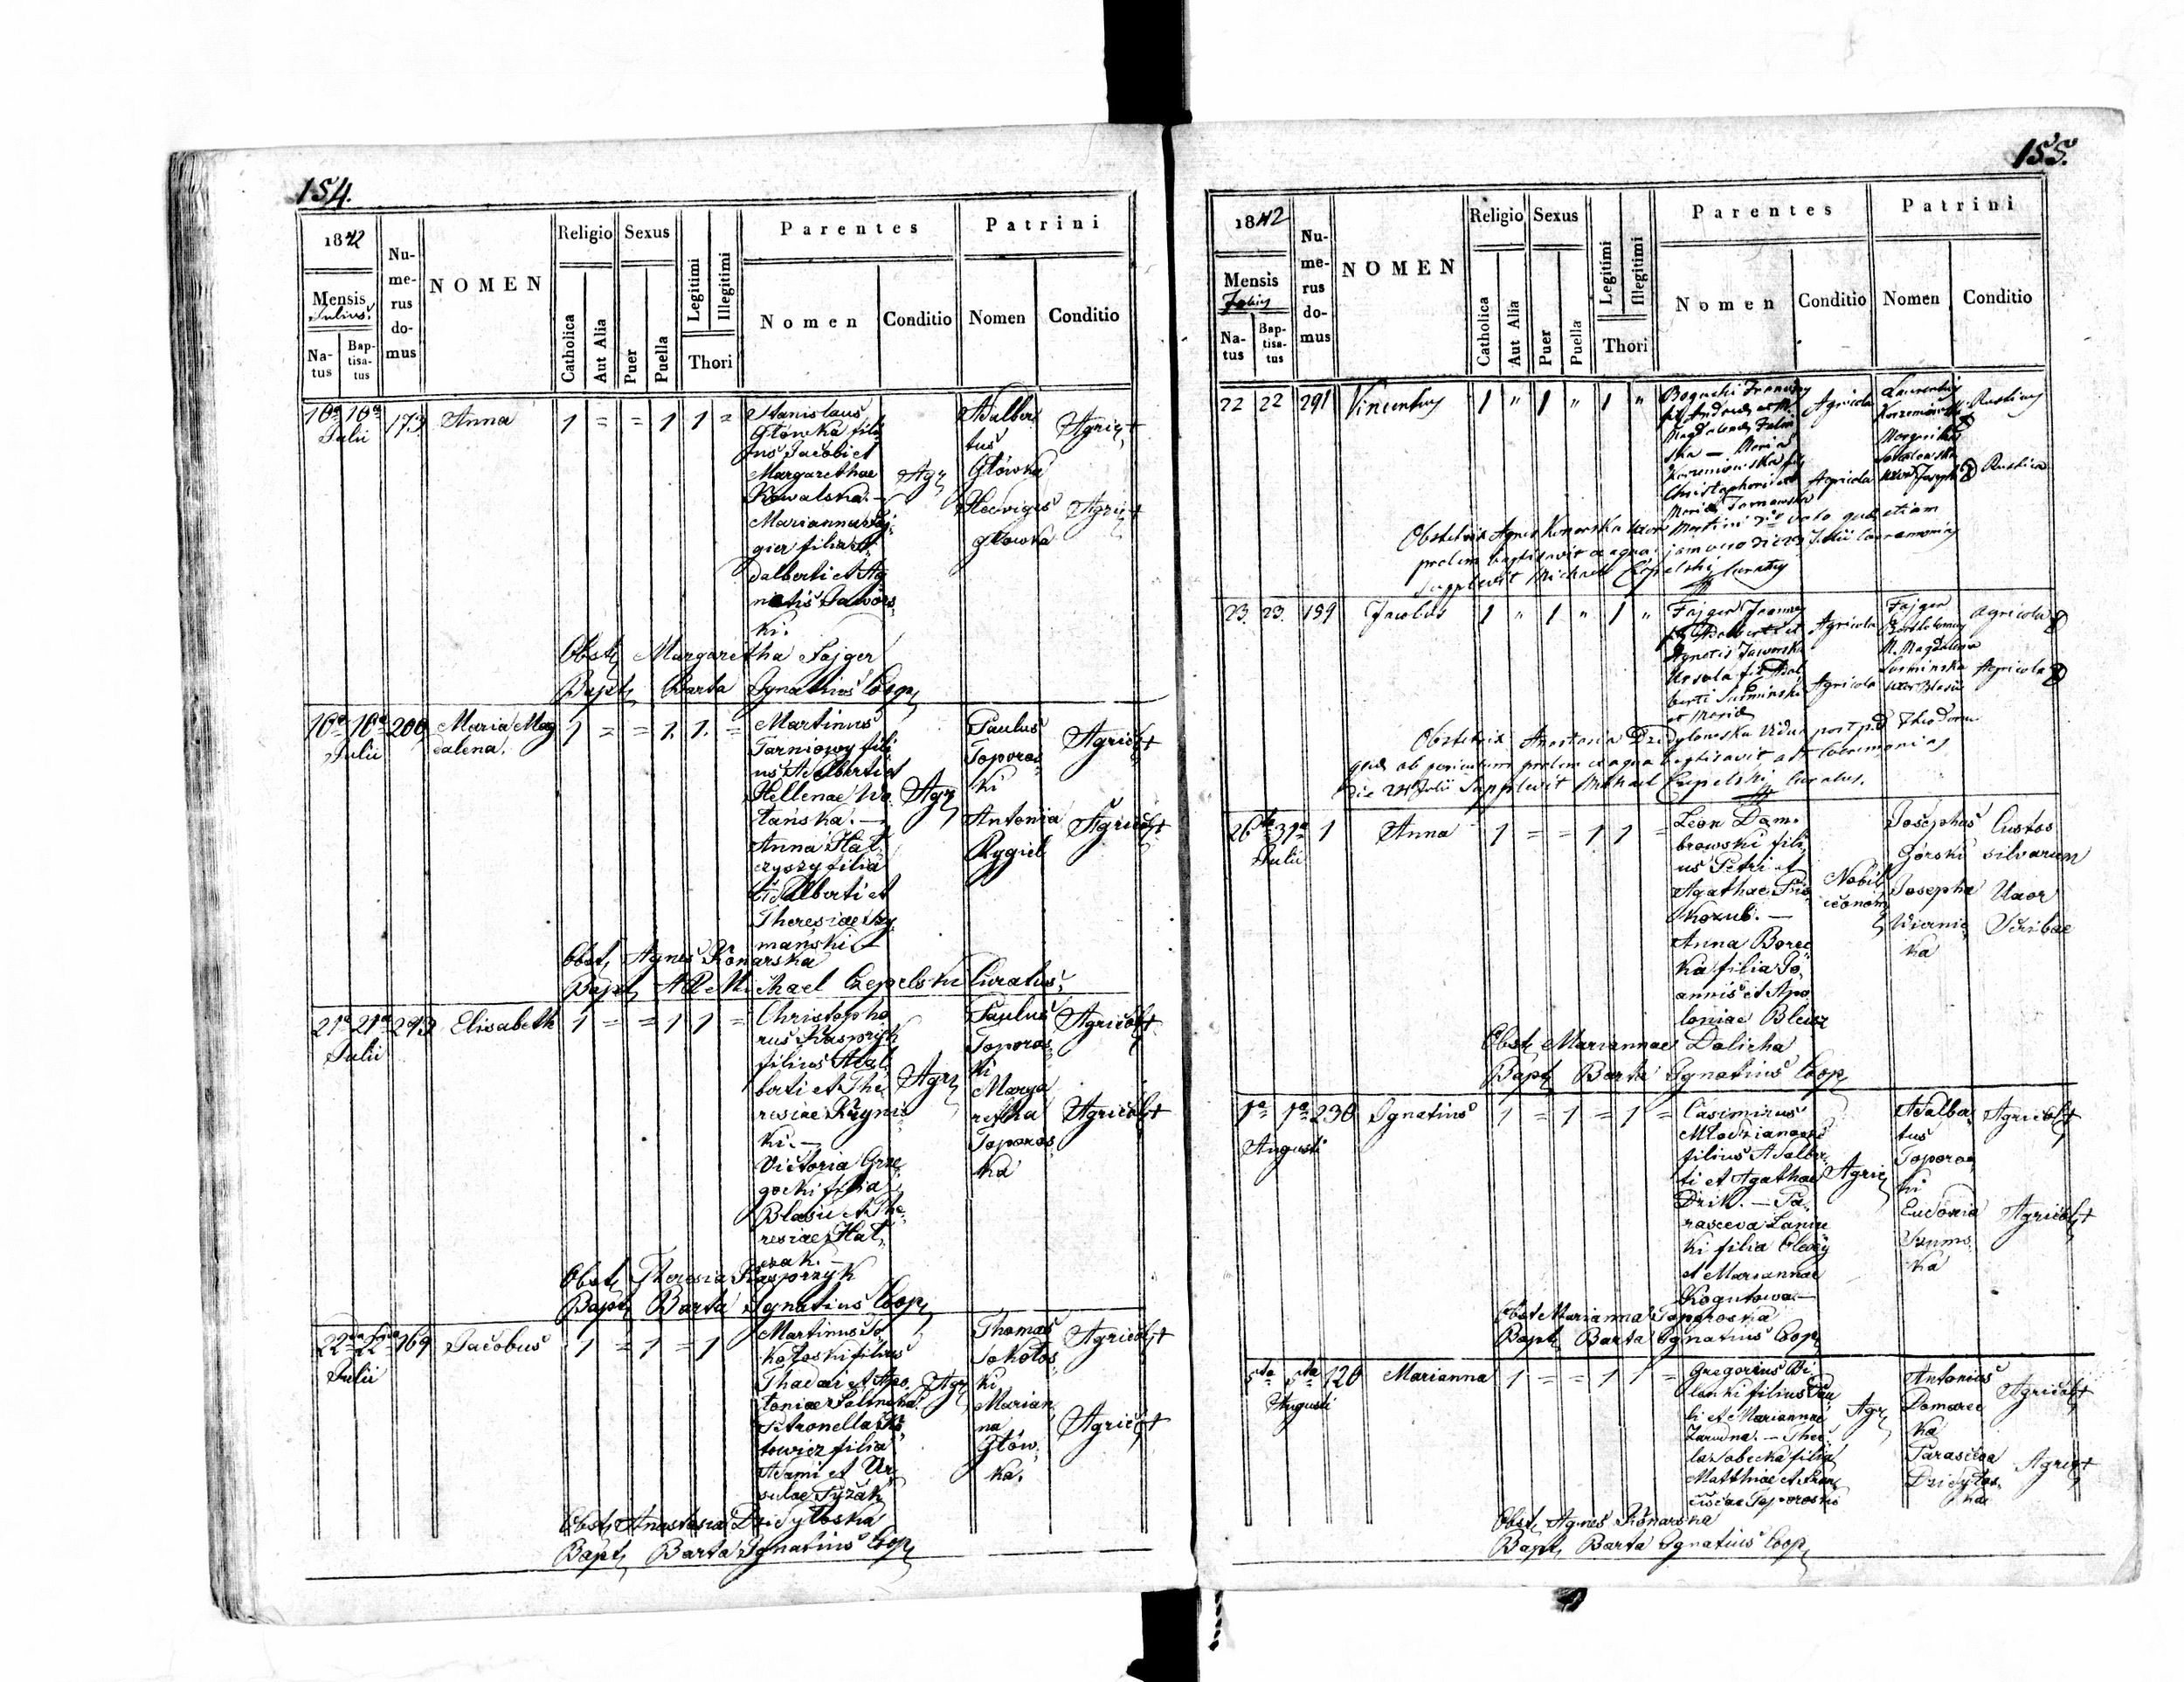 154.
1842
Mensis
Julius.
Natus
Baptisatus
Numerus domus
NOMEN
Religio
Catholica
Aut Alia
Sexus
Puer
Puella
Legitimi
Illegitimi
Thori
Parentes
Nomen
Conditio
Patrini
Nomen
Conditio
16a 16a 173 Anna 1 = = 1 1 =
Julii
Stanislaus
Główka fili
us Jacobi et
Margarethae
Kowalska. —
Marianna Faj
gier filia A
dalberti et Ag
netis Jawors
ki.
Agr
Adalber
tus
Główka
Hedviges
Główka
Agric +
Agric +
Obst Margaretha Fajger
Bapt Barta Ignatius Coop
16a 16a 200 Maria Mag 1 = = 1. 1. =
Julii dalena.
Martinus
Tarniowy fili
us Adalberti et
Hellenae Wo
tańska. —
Anna Hał
czyszy filia
Adalberti et
Theresiae Szy
mański
Agr
Paulus
Toporos
ki
Antonia
Rygiel
Agricol +
Agricol +
Obst Agnes Konarska
Bapt A R Michael Czepelski Curatus
21a 21a 293 Elisabeth 1 = = 1 1 =
Julii
Christopho
rus Kasprzyk
filius Adal
berti et The
resiae Krynic
ki. —
Victoria Grze
gocki filia
Blasii et The
resiae Hał
czak. —
Agr
Paulus
Toporos
ki
Marga
retha
Toporos
ka
Agricol +
Agricol +
Obst Theresia Kasprzyk
Bapt Barta Ignatius Coop
22da 22da 169 Jacobus 1 = 1 = 1
Julii
Martinus So
kołoski filius
Thadaei et Apo
loniae
Petronella
towicz filia
Adami et Ur
sulae Pyżak
Agr
Thomas
Sokołos
ki
Marian
na
Głów
ka.
Agricol +
Agricol +
Obst Anastasia Dziedyłoska
Bapt Barta Ignatius Coop
155.
1842
Mensis
Julius
Natus
Baptisatus
Numerus domus
NOMEN
Religio
Catholica
Aut Alia
Sexus
Puer
Puella
Legitimi
Illegitimi
Thori
Parentes
Nomen
Conditio
Patrini
Nomen
Conditio
22 22 291 Vincentius 1 " 1 " 1 "
Bogucki Franciscus
fil Andreae et M.
Magdalenae
ska — Maria
Korzeniowska fil
Christophori et
Maria Tarnawska
Agricola
Agricola
Laurentius
Korzeniowski
Margaritha
Sokolowska
uxor Josephi
Rusticus
Rustica
Obstetrix Agnes Konarska uxor Martini quae etiam
prolem baptisavit ex aqua, jam vero die 23 Julii Caeremonias
supplevit Michael Czepelski Curatus
23. 23. 159 Jacobus 1 " 1 " 1 "
Fajger Joannes
fil Adalberti et
Agnetis Jaworska
Ursula fil Adal
berti Surminski
et Maria
Agricola
Agricola
Fajger
Bartholomeus
M. Magdalena
Surminska
uxor Blasii
Agricola
Agricola
Obstetrix Anastasia Dzidyłowska Vidua post pd Theodorum
quae ob periculum prolem ex aqua baptisavit, at Caeremonias
die 24 Julii supplevit Michael Czepelski Curatus.
26ta 31a 1 Anna 1 = = 1 1 =
Julii
Leon Dąm
browski fili
us Petri et
Agathae Trio
kozub. —
Anna Borec
ka filia Jo
annis et Apo
loniae Bleisz
Nobil
oeconom
Josephus
Górski
Josepha
Wiernic
ka
Custos
silvarum
Uxor
Scribae
Obst Mariannae Dolicha
Bapt Barta Ignatius Coop
1a 1a 230 Ignatius 1 = 1 = 1 =
Augusti
Casimirus
Młodzianoski
filius Adalber
ti et Agathae
Dzik. — Pa
rasceva Lanic
ki filia Olexÿ
et Mariannae
Kogutowa —
Agric
Adalber
tus
Toporos
ki
Eudoxia
Szums
ka
Agricol +
Agricol +
Obst Marianna Toporoska
Bapt Barta Ignatius Coop
5ta 5ta 120 Marianna 1 = = 1 1 =
Augusti
Gregorius Bi
lenki filius Pau
li et Mariannae
Zarudna. — Thec
la Sobecka filia
Matthiae et Fran
ciscae Toporoski
Agr
Antonius
Domarec
ka
Parasceva
Dziedyłos
ka
Agricol +
Agric +
Obst Agnes Konarska
Bapt Barta Ignatius Coop